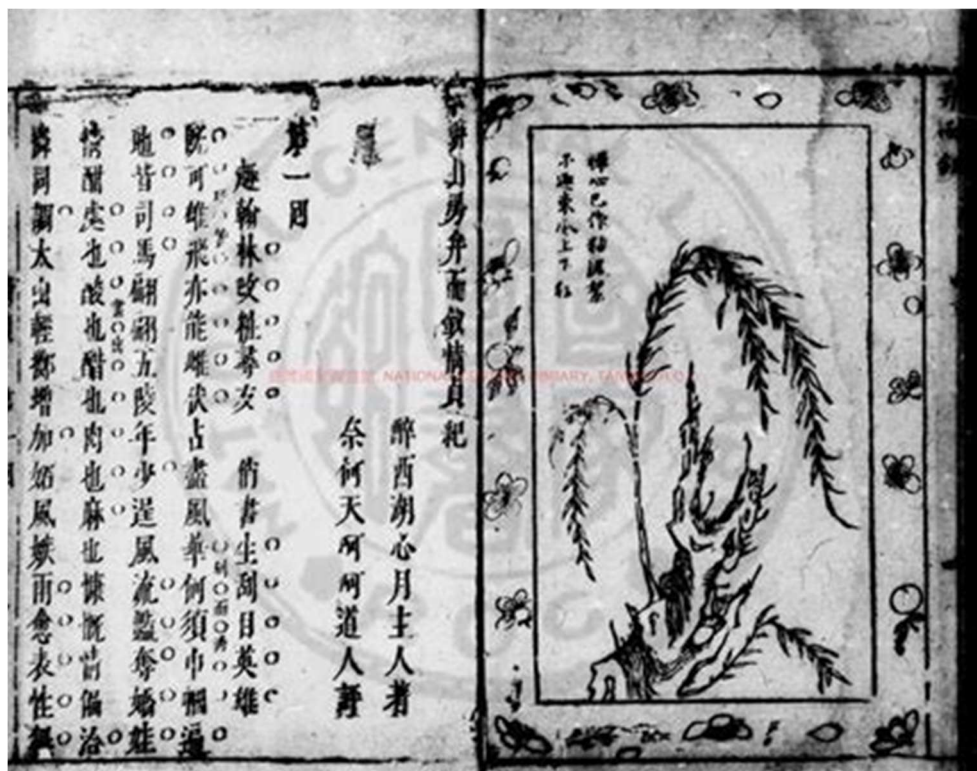 禪心已作粘泥絮
不逐東風上下狂
山房弁而釵情貞紀
醉西湖心月主人著
奈何天呵呵道人評
第一回
趨翰林改粧尋友 俏書生刮目英雄
可雄飛亦能雌占盡風華何須巾幗
昔司馬翩翩五陵年少逞風流豔奪嬌娃
情酣處也酸也醋也肉也麻也慷慨情偏洽
詞調太山輕增加妬風嫉雨愈表性
NATIONAL CENTRAL LIBRARY, TAIWAN, R.O.C